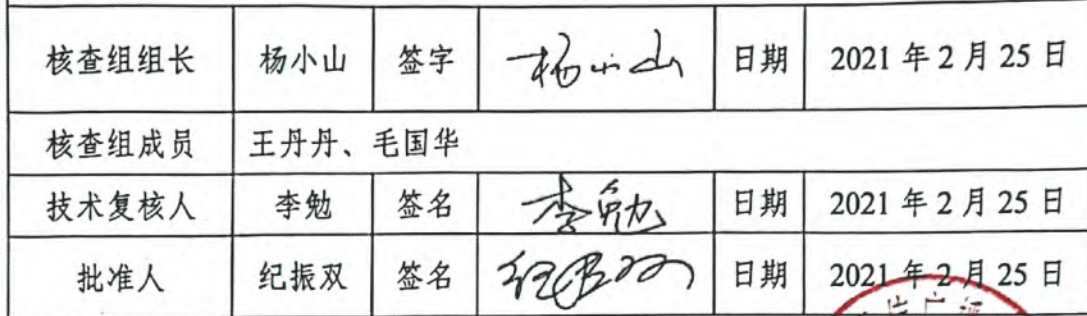 核查组组长 杨小山 签字 杨小山 日期 2021 年 2 月 25 日
核查组成员 王丹丹、毛国华
技术复核人 李勉 签名 李勉 日期 2021 年 2 月 25 日
批准人 纪振双 签名 纪振双 日期 2021 年 2 月 25 日